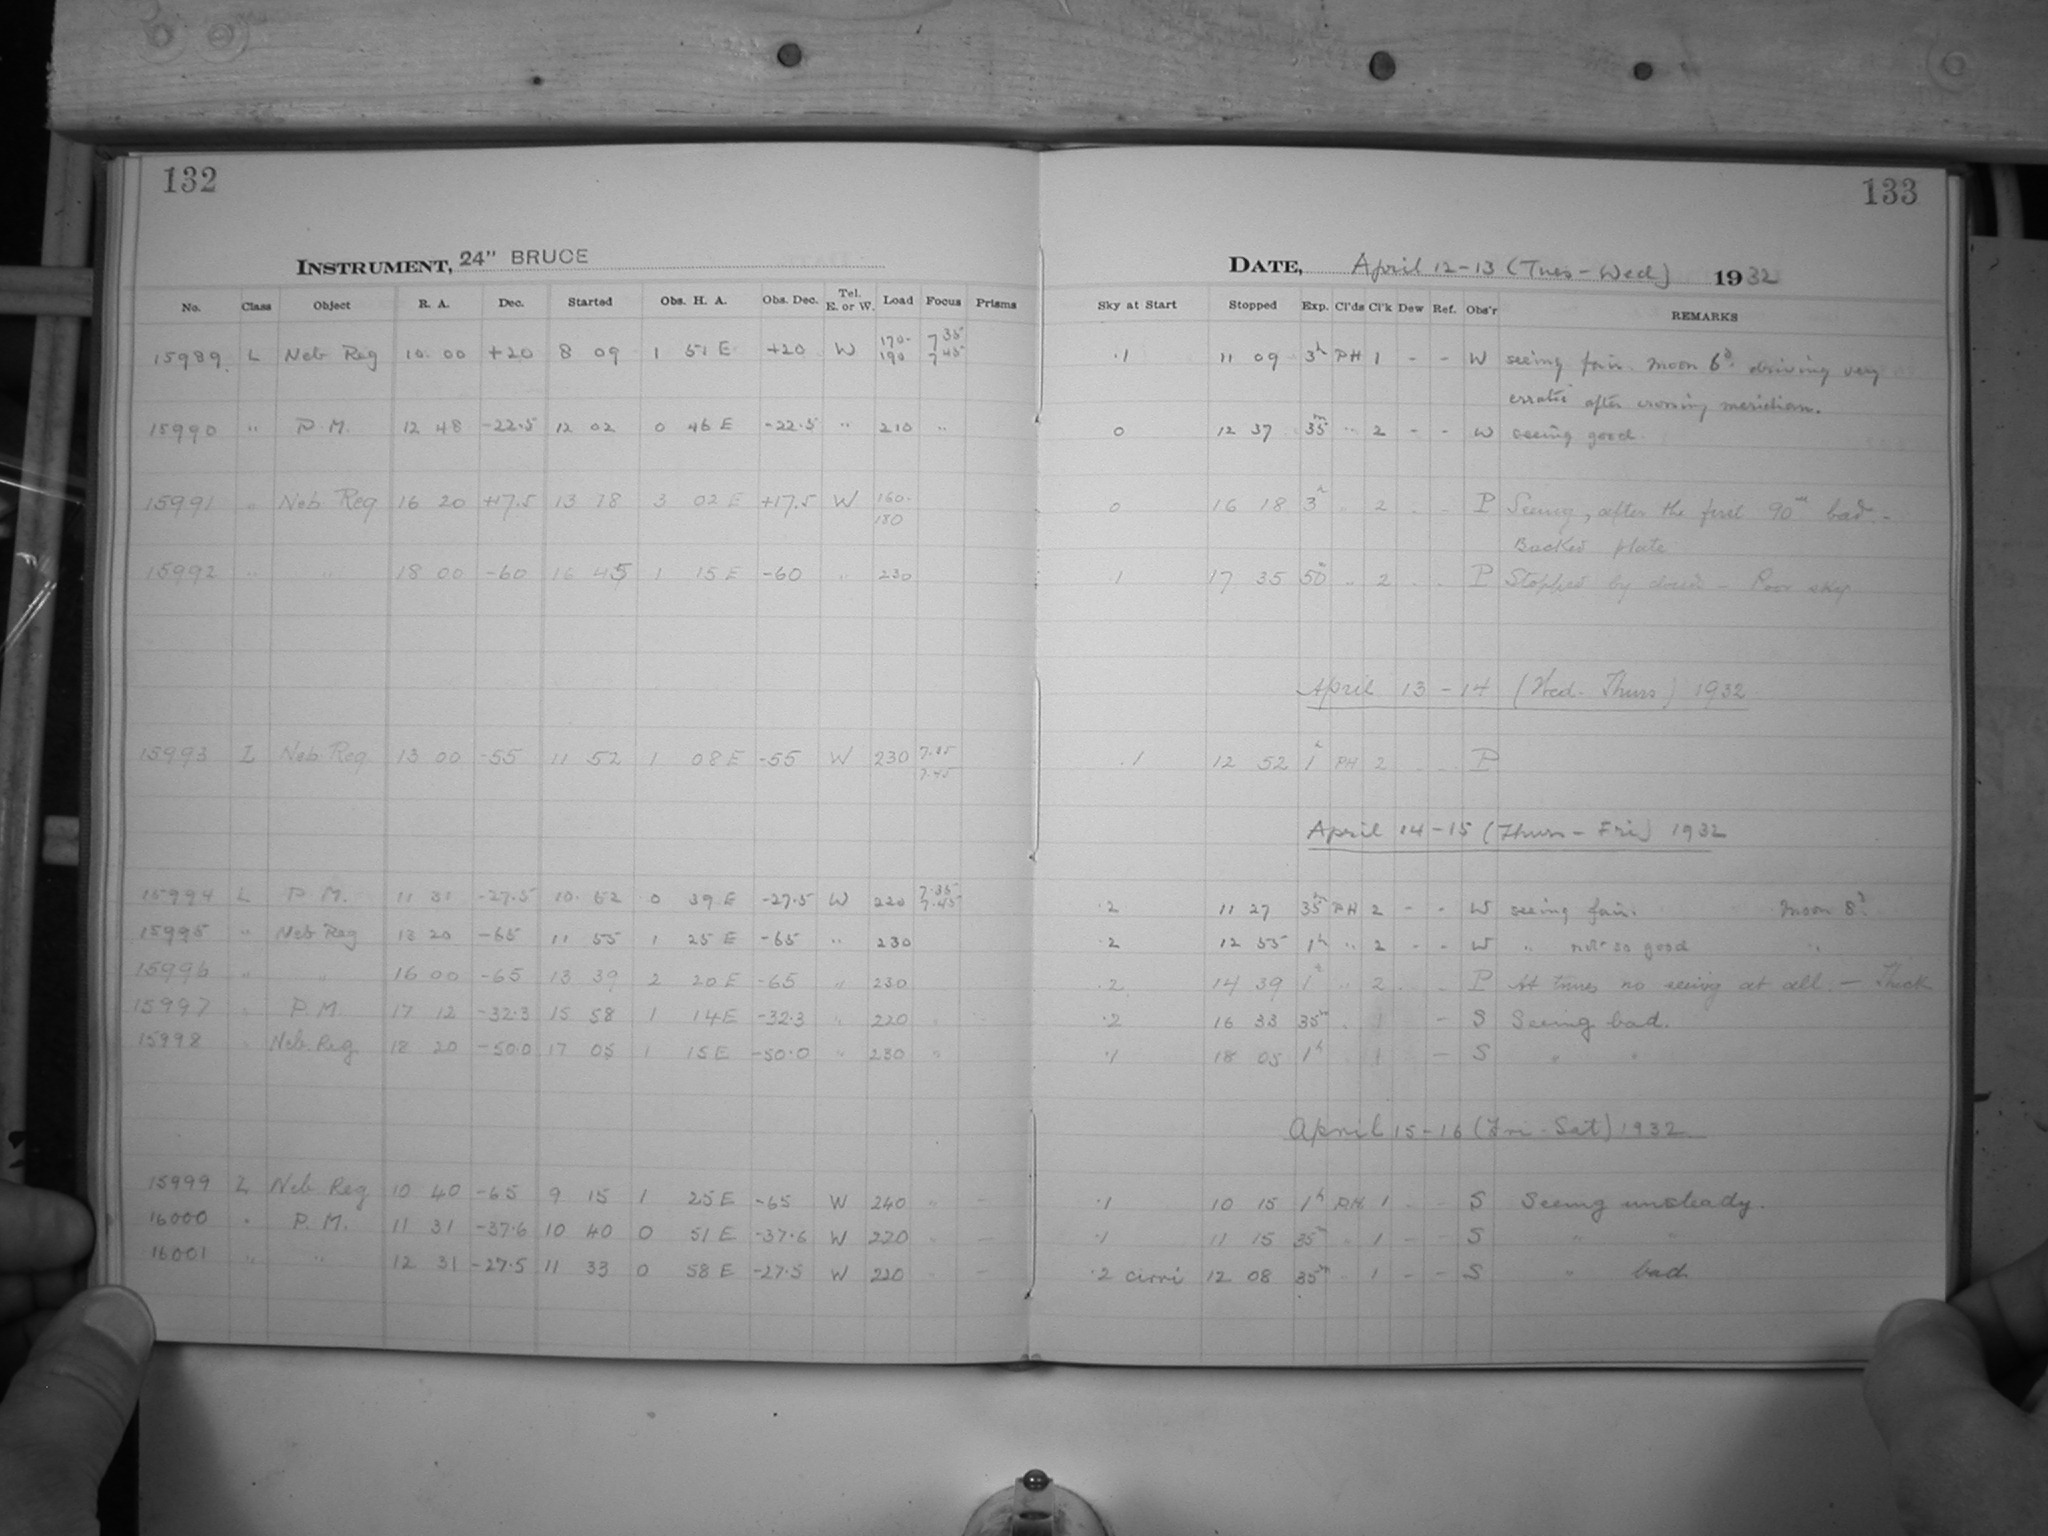 132
133
INSTRUMENT, 24" BRUCE
DATE, April 12-13 (Tues-Wed) 1932
No. Class Object R. A. Dec. Started Obs. H. A. Obs. Dec. Tel. E. or W. Load Focus Prisms Sky at Start Stopped Exp. Cl'ds Cl'k Dew Ref. Obs'r REMARKS
15989 L Neb Reg 10 00 +20 8 09 1 51 E +20 W 170- 190 7 35 7 45 .1 11 09 3h PH 1 - - W seeing fair. Moon 6d. driving very
erratic after crossing meridian.
15990 " P.M. 12 48 -22.5 12 02 0 46 E -22.5 " 210 " 0 12 37 35m " 2 - - W seeing good.
15991 " Neb Reg 16 20 +17.5 13 18 3 02 E +17.5 W 160- 180 0 16 18 3h " 2 - - P Seeing, after the first 90m bad -
Backed plate
15992 " " 18 00 -60 16 45 1 15 E -60 " 230 .1 17 35 50m " 2 - - P Stopped by clouds - Poor sky
April 13-14 (Wed-Thurs) 1932
15993 L Neb Reg 13 00 -55 11 52 1 08 E -55 W 230 7.35 7.45 .1 12 52 1h PH 2 - - P
April 14-15 (Thurs-Fri) 1932
15994 L P.M. 11 31 -27.5 10 52 0 39 E -27.5 W 220 7.35 7.45 .2 11 27 35m PH 2 - - W seeing fair. Moon 8d.
15995 " Neb Reg 13 20 -65 11 55 1 25 E -65 " 230 .2 12 55 1h " 2 - - W " not so good "
15996 " " 16 00 -65 13 39 2 20 E -65 " 230 .2 14 39 1h " 2 - - P At times no seeing at all. - Thick
15997 " P.M. 17 12 -32.3 15 58 1 14 E -32.3 " 220 " .2 16 33 35m " 1 - S Seeing bad.
15998 " Neb. Reg 18 20 -50.0 17 05 1 15 E -50.0 " 230 " .1 18 05 1h " 1 - S " "
April 15-16 (Fri-Sat) 1932
15999 L Neb Reg 10 40 -65 9 15 1 25 E -65 W 240 " - .1 10 15 1h PH 1 - - S Seeing unsteady.
16000 " P.M. 11 31 -37.6 10 40 0 51 E -37.6 W 220 " - .1 11 15 35m " 1 - - S " "
16001 " " 12 31 -27.5 11 33 0 58 E -27.5 W 220 " - .2 cirri 12 08 35m " 1 - - S " bad